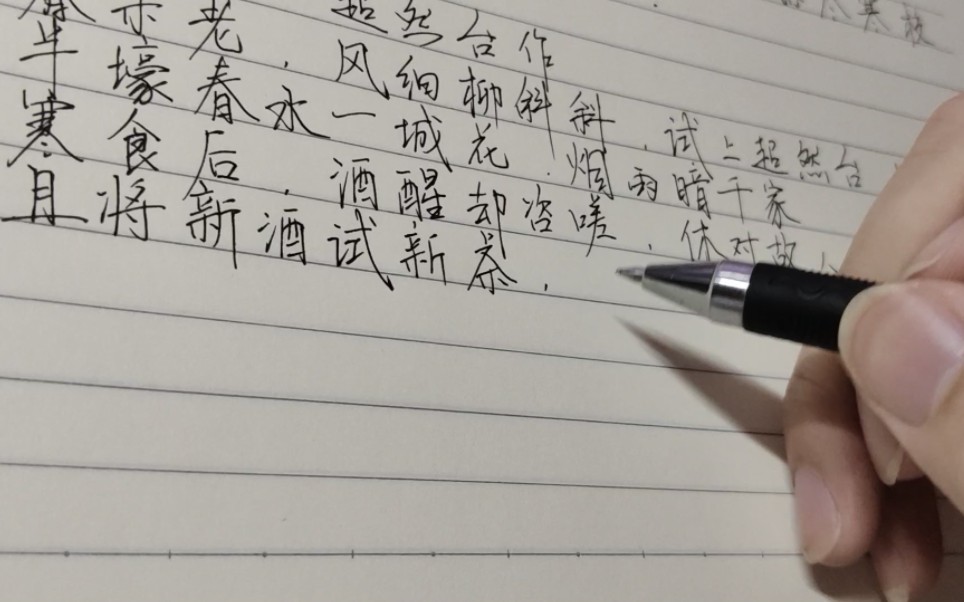 超然台作
春未老，风细柳斜斜，试上超然台
半壕春水一城花．烟雨暗千家
寒食后．酒醒却咨嗟，休对故
且将新酒试新茶．